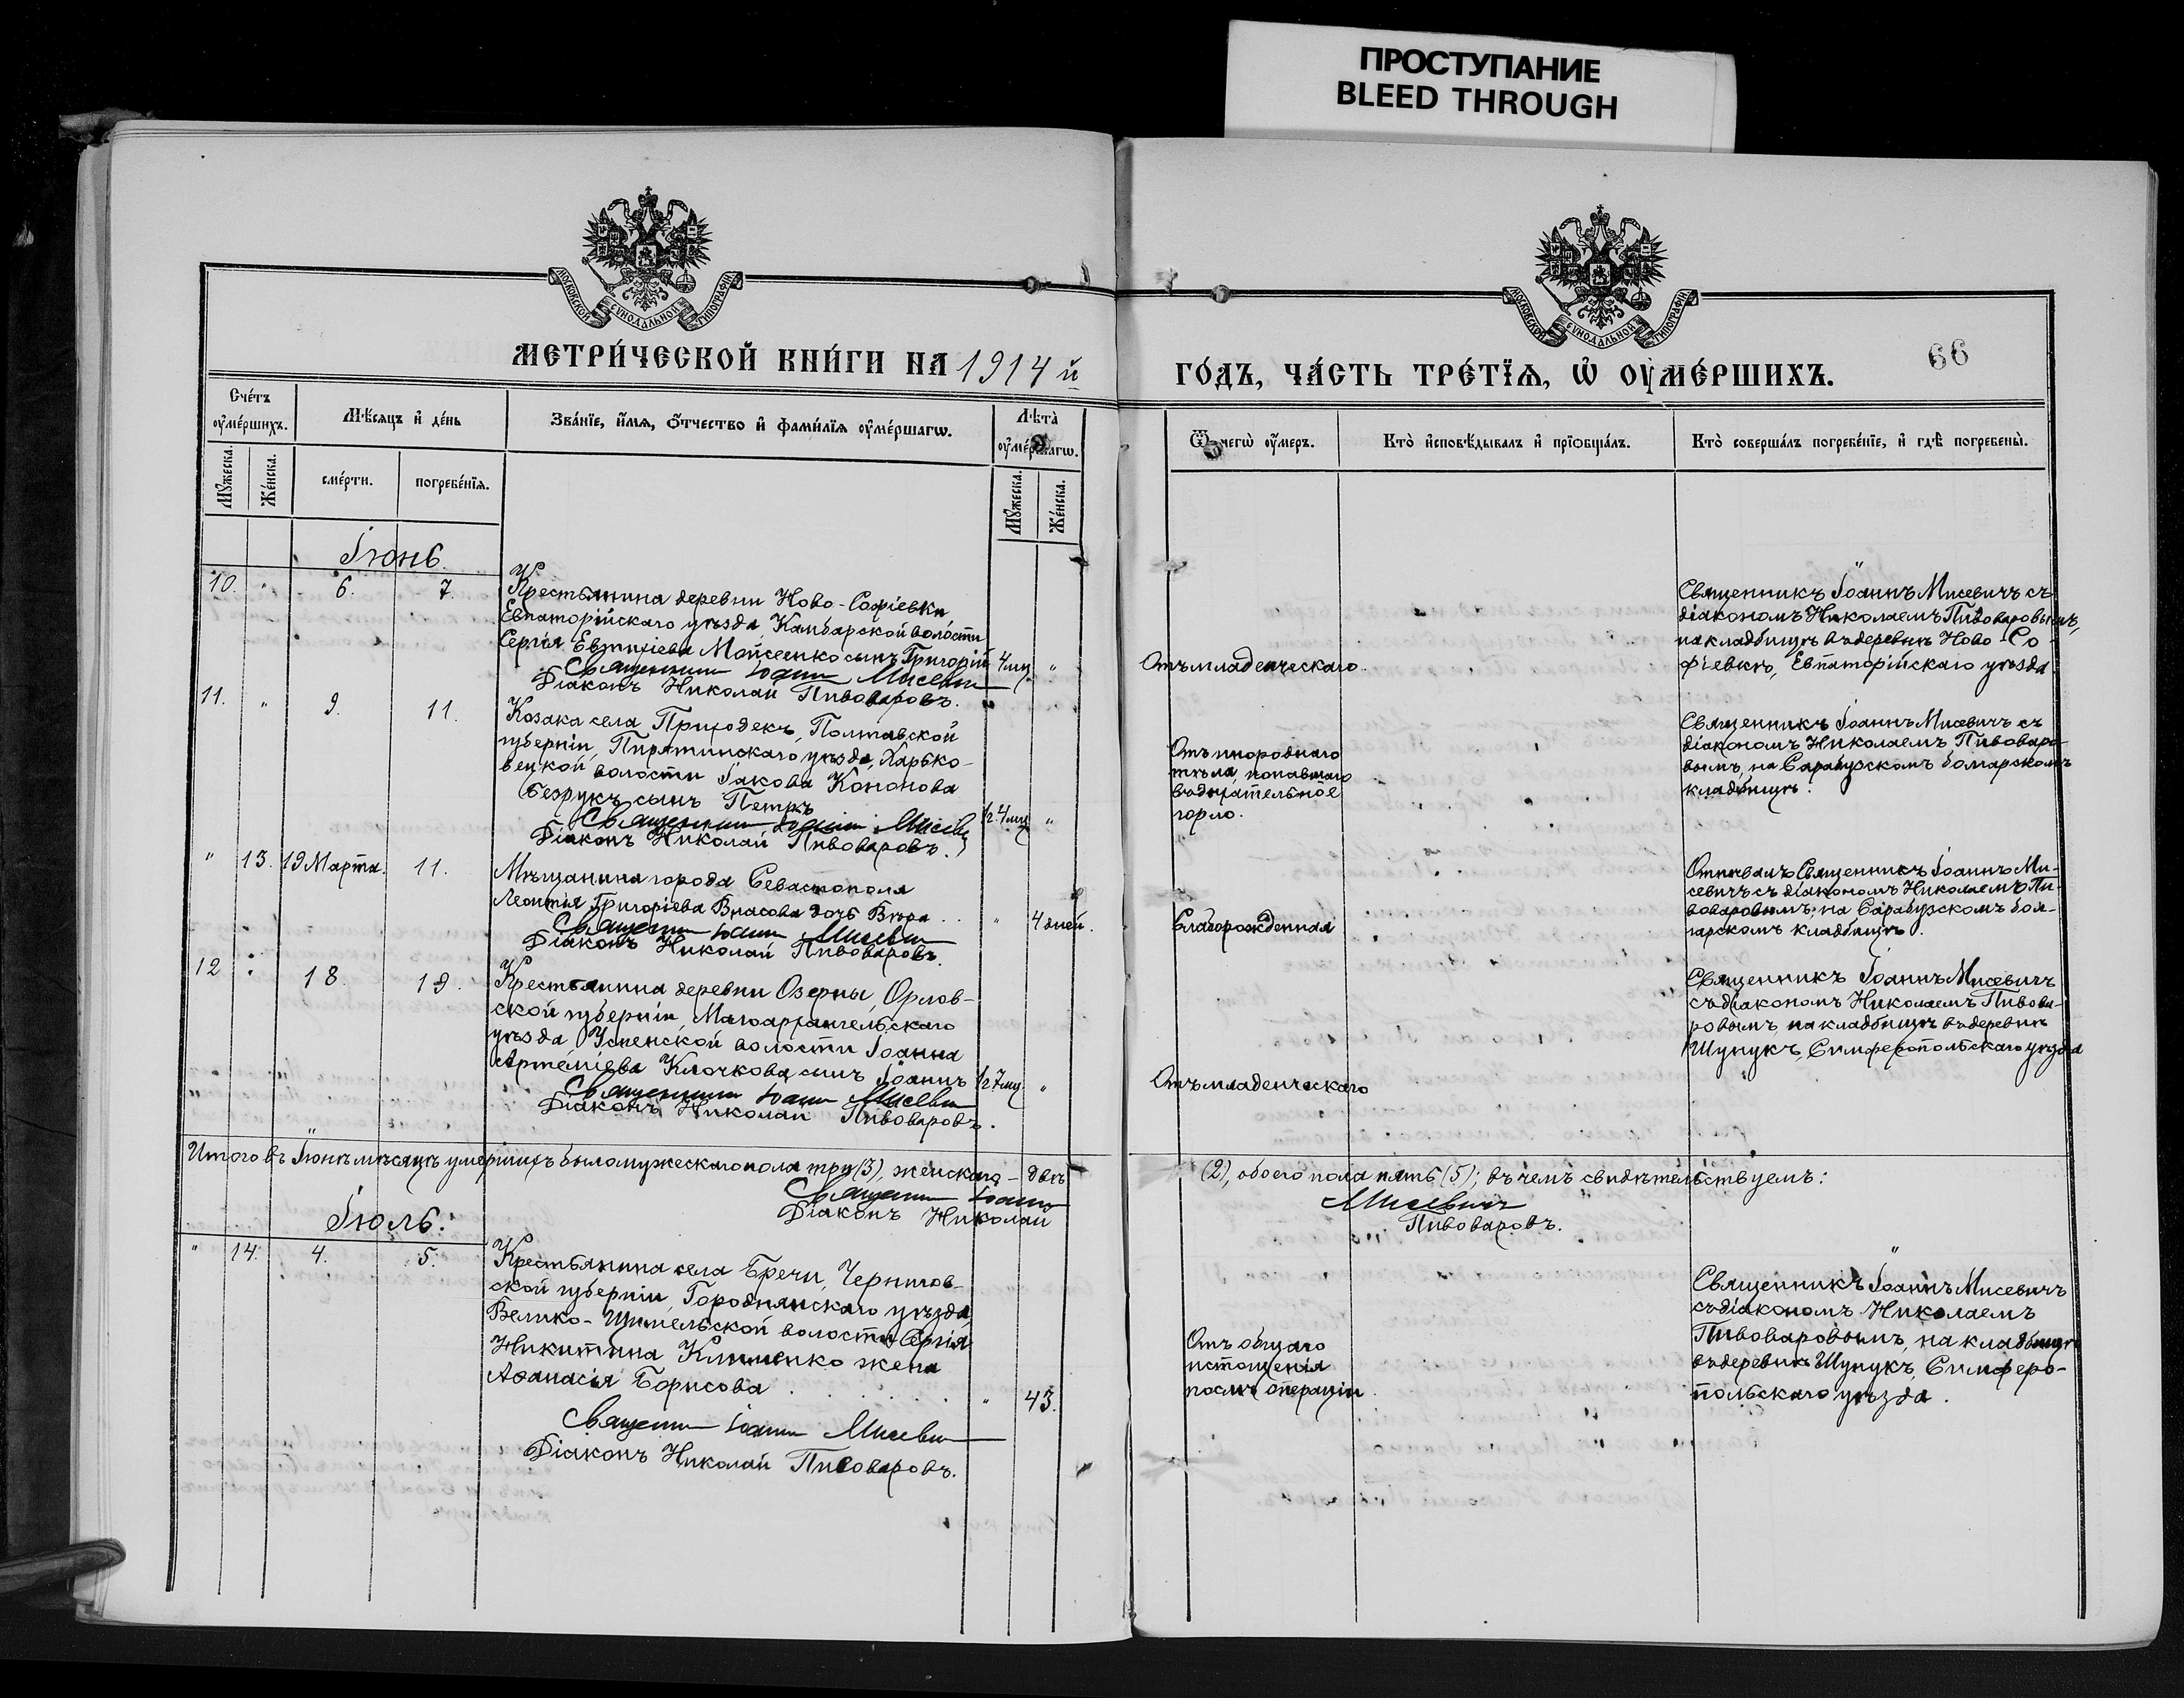 ПРОСТУПАНИЕ
BLEED THROUGH
МОСКОВСКОЙ СѴНОДАЛЬНОЙ ТИПОГРАФІИ
МОСКОВСКОЙ СѴНОДАЛЬНОЙ ТИПОГРАФІИ
МЕТРИ́ЧЕСКОЙ КНИ́ГИ НА 1914 й
ГО́ДЪ, ЧА́СТЬ ТРЕ́ТЇѦ, Ѡ҆ ОУ҆МЕ́РШИХЪ.
66
Сче́тъ оу҆ме́ршихъ.
Мѣ́сѧцъ и҆ де́нь
Зва́нїе, и҆́мѧ, ѻ҆́тчество и҆ фами́лїѧ оу҆ме́ршагѡ.
Лѣта̀ оу҆ме́ршагѡ.
Мꙋ́жеска.
Же́нска.
сме́рти.
погребе́нїѧ.
Мꙋ́жеска.
Же́нска.
Ѿ чегѡ̀ оу҆́меръ.
Кто̀ и҆сповѣ́дывалъ и҆ прїѻбща́лъ.
Кто̀ соверша́лъ погребе́нїе, и҆ гдѣ̀ погребены̀.
Іюнь.
10. " 6. 7.
Крестьянина деревни Ново-Софіевки
Евпаторійскаго уѣзда Камбарской волости
Сергія Евѳиміева Мойсеенко сынъ Григорій 4 мц. "
Священникъ Іоаннъ Мисевичъ
Діаконъ Николай Пивоваровъ.
Отъ младенческаго.
Священникъ Іоаннъ Мисевичъ съ
діакономъ Николаемъ Пивоваровымъ,
на кладбищѣ въ деревнѣ Ново-Со
фіевкѣ, Евпаторійскаго уѣзда.
11. " 9. 11.
Козака села Приходекъ, Полтавской
губерніи, Пирятинскаго уѣзда, Харько-
вецкой волости Іакова Кононова
Безрукъ сынъ Петръ 1 г. 4 мц "
Священникъ Іоаннъ Мисевичъ
Діаконъ Николай Пивоваровъ.
Отъ инороднаго
тѣла, попавшаго
въ дыхательное
горло.
Священникъ Іоаннъ Мисевичъ съ
діакономъ Николаемъ Пивоваро-
вымъ, на Сарабузскомъ болгарскомъ
кладбищѣ.
" 13. 19 Марта. 11.
Мѣщанина города Севастополя
Леонтія Григоріева Власова дочь Вѣра . . " 4 дней.
Священникъ Іоаннъ Мисевичъ
Діаконъ Николай Пивоваровъ.
Слаборожденная
Отпѣвалъ Священникъ Іоаннъ Ми-
севичъ съ діакономъ Николаемъ Пи-
воваровымъ; на Сарабузскомъ бол-
гарскомъ кладбищѣ.
12 : 18. 19.
Крестьянина деревни Озерны, Орлов-
ской губерніи, Малоархангельскаго
уѣзда Успенской волости Іоанна
Артеміева Клочкова сынъ Іоаннъ 1 г. 7 мц. "
Священникъ Іоаннъ Мисевичъ
Діаконъ Николай Пивоваровъ.
Отъ младенческаго
Священникъ Іоаннъ Мисевичъ
съ діакономъ Николаемъ Пивова-
ровымъ на кладбищѣ въ деревнѣ
Шунукъ, Симферопольскаго уѣзда
Итого въ Іюнѣ мѣсяцѣ умершихъ было мужескаго пола три (3), женскаго – двѣ
(2), обоего пола пять (5); въ чемъ свидѣтельствуемъ:
Священникъ Іоаннъ Мисевичъ
Діаконъ Николай Пивоваровъ.
Іюль:
" 14. 4. 5.
Крестьянина села Бречи, Чернигов-
ской губерніи, Городнянскаго уѣзда,
Велико-Щимельской волости Сергія
Никитина Клименко жена
Аѳанасія Борисова . . . . . " 43.
Священникъ Іоаннъ Мисевичъ
Діаконъ Николай Пивоваровъ.
Отъ общаго
истощенія
послѣ операціи.
Священникъ Іоаннъ Мисевичъ
съ діакономъ Николаемъ
Пивоваровымъ, на кладбищѣ
въ деревнѣ Шунукъ, Симферо-
польскаго уѣзда.